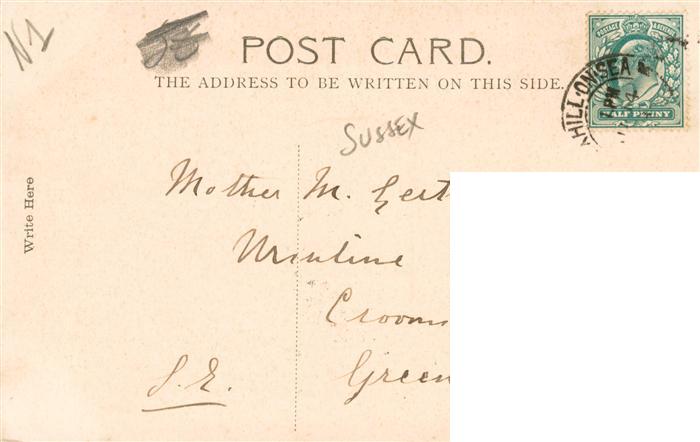 N1
55
POST CARD.
THE ADDRESS TO BE WRITTEN ON THIS SIDE.
POSTAGE & REVENUE
HALF PENNY
HILL-ON-SEA
PM
4
SUSSEX
Write Here
Mother M. Gert
Ursuline
Crooms
Green
S.E.